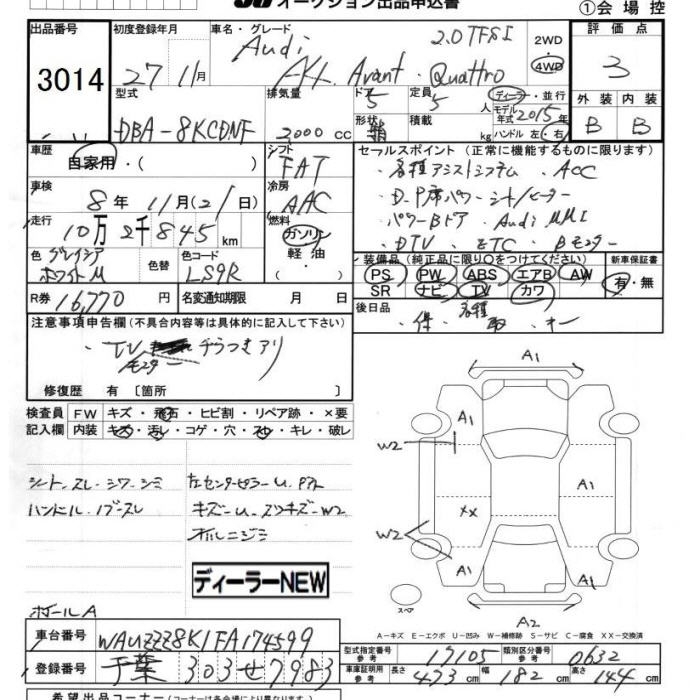 オークション出品申込書
①会場控
出品番号
3014
初度登録年月
27 11月
車名・グレード
Audi 2.0 TFSI
A4 Avant・Quattro
2WD
4WD
評価点
3
型式
DBA-8KCDNF
排気量
2000 cc
ドア
5
形状
定員
5人
積載
kg
ディーラー・並行
モデル年式 2015年
ハンドル 左・右
外装 内装
B B
車歴
自家用・( )
シフト
FAT
セールスポイント (正常に機能するものに限ります)
・各種アシストシステム ・ACC
・D.P席パワーシート/ヒーター
・パワーBドア ・Audi MMI
・DTV ・ETC ・Bモニター
車検
8年 11月(21日)
冷房
AAC
走行
10万2千845km
燃料
ガソリン
軽油
( )
色 グレイシアホワイトM
色替
色コード
LS9R
装備品(純正品に限り○をつけてください)
PS PW ABS エアB AW
SR ナビ TV カワ
新車保証書
有・無
R券 16,770円
名変通知期限 月 日
後日品
・保 各種取 ・
注意事項申告欄(不具合内容等は具体的に記入して下さい)
・TVモニターチラつきアリ
修復歴 有 〔箇所 〕
検査員記入欄
FW キズ・飛石・ヒビ割・リペア跡・×要
内装 キズ・汚レ・コゲ・穴・スレ・キレ・破レ
シート、スレ・シワ・シミ
ハンドル・ノブ-スレ
左センターピラーU、
キズ-U、スリキズ-W2
ディーラーNEW
ポールA
A1
A1
W2
A1
XX
W2
A1
A1
A2
スペア
A-キズ E-エクボ U-凹み W-補修跡 S-サビ C-腐食 XX-交換済
車台番号 WAUZZZ8K1FA174599
登録番号 千葉 303 せ 7983
型式指定番号 参考 17105
類別区分番号 参考 0632
車庫証明用 参考 長さ 473cm 幅 182cm 高さ 144cm
希望出品コーナー(コーナーは各会場により異なります。)